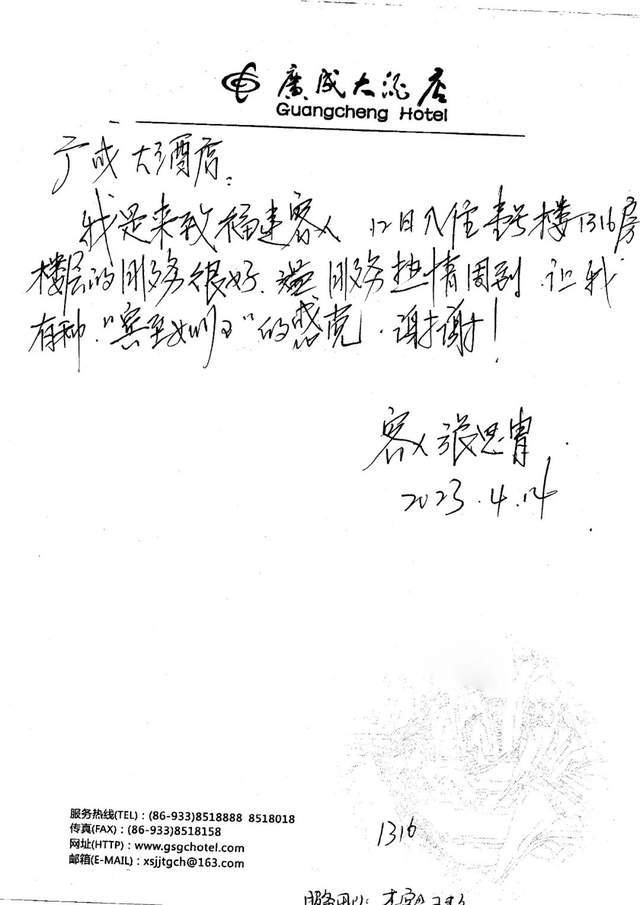 廣成大酒店
Guangcheng Hotel
广成大酒店:
我是来自福建客人 12日入住 楼1316房
楼层的服务很好. 服务热情周到 让我
有种"宾至如归"的感觉. 谢谢!
客人 张思
2023.4.14
服务热线(TEL):(86-933)8518888 8518018
传真(FAX):(86-933)8518158
网址(HTTP):www.gsgchotel.com
邮箱(E-MAIL):xsjjtgch@163.com
1316